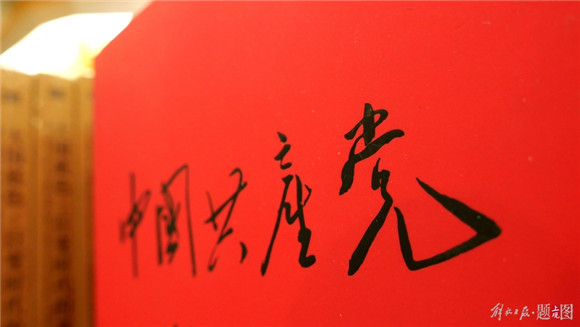 中國共產党
解放日报·题图